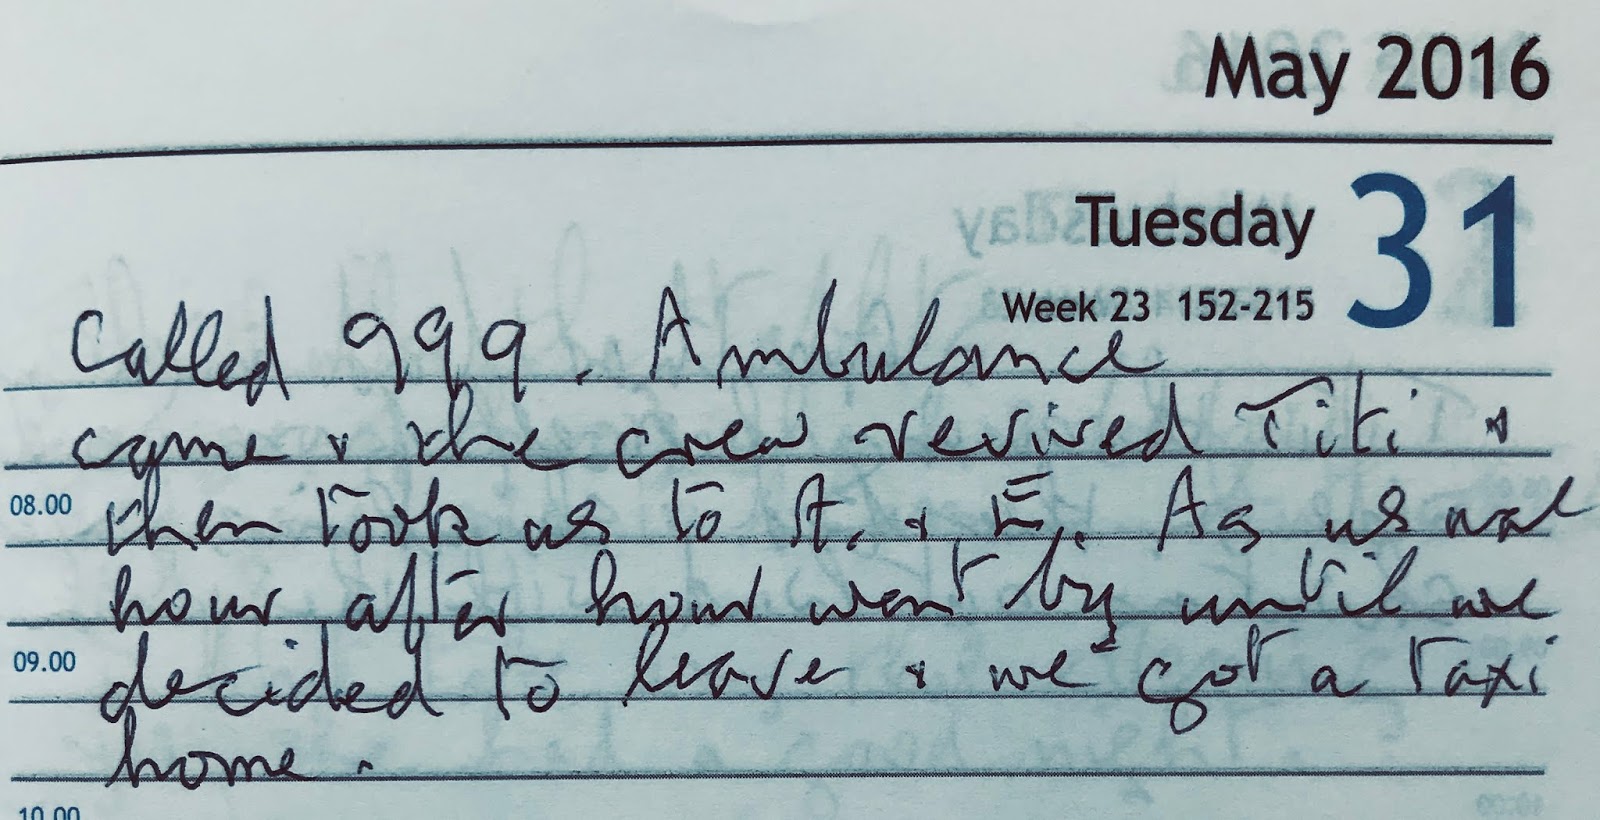 May 2016
Tuesday 31
Week 23 152-215
Called 999. Ambulance
came & the crew revived Titi &
08.00 then took us to A. & E. As usual
hour after hour went by until we
09.00 decided to leave & we got a taxi
home.
10.00